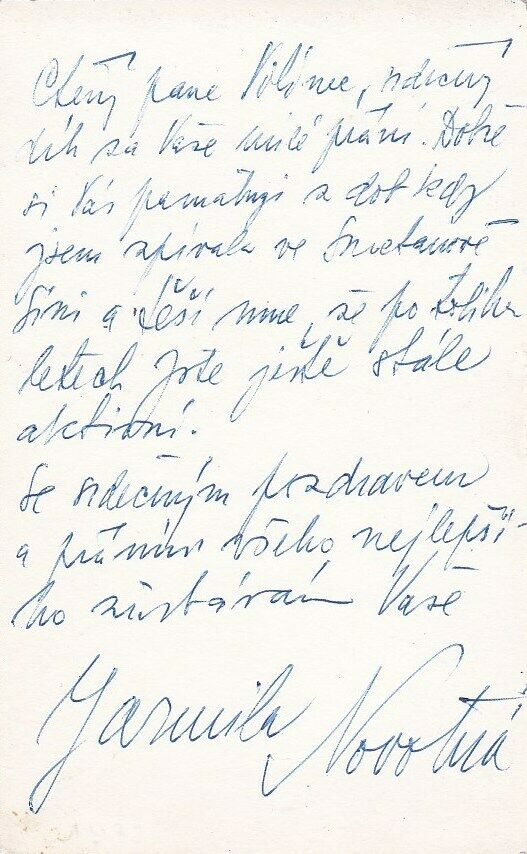 Ctěný pane Vilímec, srdečný
dík za Vaše milé přání. Dobře
si Vás pamatuji z dob kdy
jsem zpívala ve Smetanově
síni a těší mne, že po tolika
letech jste ještě stále
aktivní.
Se srdečným pozdravem
a přáním všeho nejlepší-
ho zůstávám Vaše
Jarmila Novotná